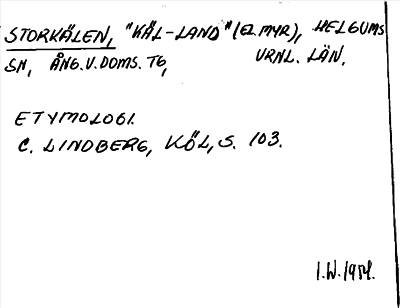 STORKÄLEN, "KÄL-LAND" (EL. MYR), HELGUMS
SN, ÅNG. V. DOMS. TG, VRNL. LÄN.
ETYMOLOGI.
C. LINDBERG, KÖL, S. 103.
I.W. 1954.